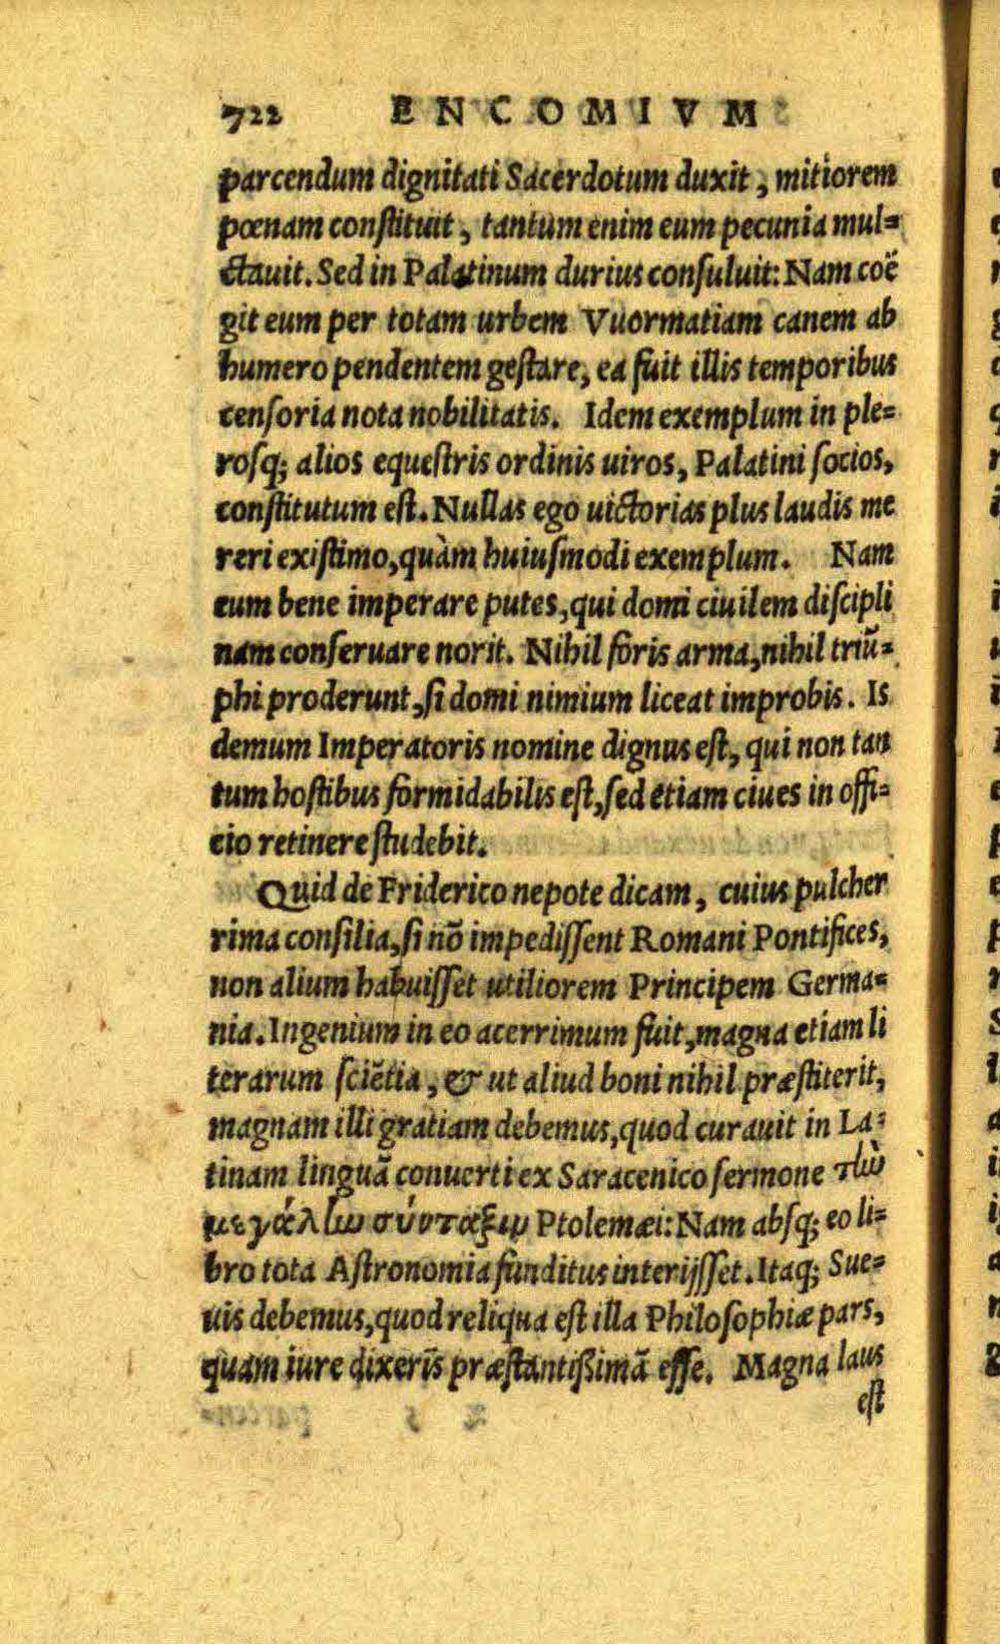 722 ENCOMIVM
parcendum dignitati Sacerdotum duxit, mitiorem
pœnam constituit, tantum enim eum pecunia mul=
ctauit. Sed in Palatinum durius consuluit: Nam coë
git eum per totam urbem Vuormatiam canem ab
humero pendentem gestare, ea fuit illis temporibus
censoria nota nobilitatis. Idem exemplum in ple=
rosq; alios equestris ordinis uiros, Palatini socios,
constitutum est. Nullas ego uictorias plus laudis me
reri existimo, quàm huiusmodi exemplum. Nam
eum bene imperare putes, qui domi ciuilem discipli
nam conseruare norit. Nihil foris arma, nihil triū=
phi proderunt, si domi nimium liceat improbis. Is
demum Imperatoris nomine dignus est, qui non tan
tum hostibus formidabilis est, sed etiam ciues in offi=
cio retinere studebit.
Quid de Friderico nepote dicam, cuius pulcher
rima consilia, si nō impedissent Romani Pontifices,
non alium habuisset utiliorem Principem Germa=
nia. Ingenium in eo acerrimum fuit, magna etiam li
terarum sciētia, & ut aliud boni nihil præstiterit,
magnam illi gratiam debemus, quod curauit in La=
tinam linguā conuerti ex Saracenico sermone τὴν
μεγάλην σύνταξιν Ptolemæi: Nam absq; eo li=
bro tota Astronomia funditus interijsset. Itaq; Sue=
uis debemus, quod reliqua est illa Philosophiæ pars,
quam iure dixeris præstantißimā esse. Magna laus
est